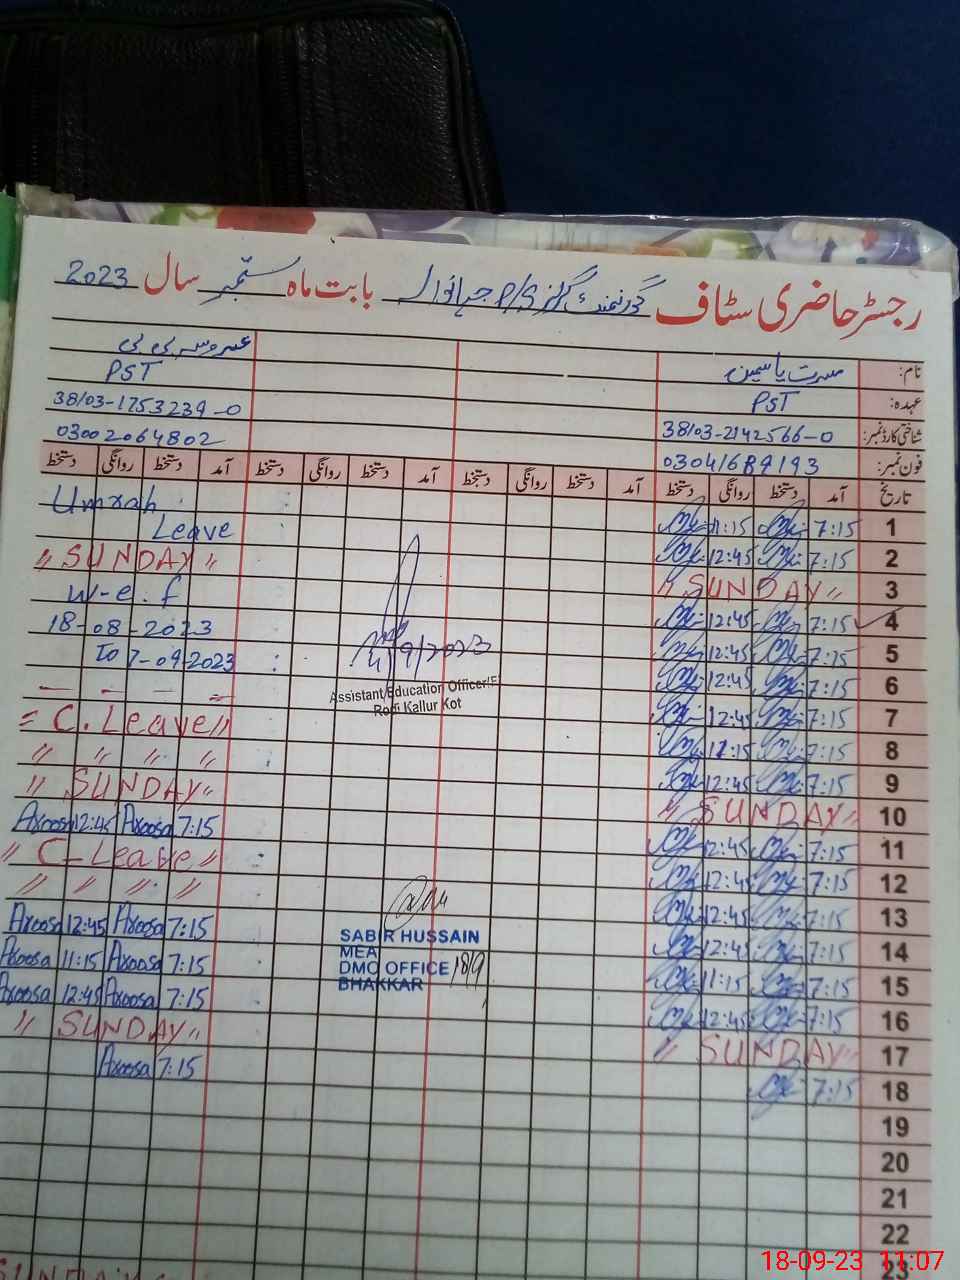 رجسٹر حاضری سٹاف گورنمنٹ گرلز P/S بابت ماہ ستمبر سال 2023
نام: مسرت یاسمین عروسہ بی بی
عہدہ: PST PST
شناختی کارڈ نمبر: 38103-2142566-0 38103-1753239-0
فون نمبر: 03041689193 03002064802
تاریخ آمد دستخط روانگی دستخط آمد دستخط روانگی دستخط آمد دستخط روانگی دستخط آمد دستخط روانگی دستخط
1 7:15 11:15 Umrah Leave
2 7:15 12:45
3 "SUNDAY" "SUNDAY"
4 7:15 12:45 w-e.f
5 7:15 12:45 18-08-2023
6 7:15 12:45 To 7-09-2023
7 7:15 12:45
8 7:15 11:15 C. Leave"
9 7:15 12:45 " " " "
10 "SUNDAY" "SUNDAY"
11 7:15 12:45 Axoosa 12:45 Axoosa 7:15
12 7:15 12:45 "C-Leave"
13 7:15 12:45 " " " "
14 7:15 12:45 Axoosa 12:45 Axoosa 7:15
15 7:15 11:15 Axoosa 11:15 Axoosa 7:15
16 7:15 12:45 Axoosa 12:45 Axoosa 7:15
17 "SUNDAY" "SUNDAY"
18 7:15 Axoosa 7:15
19
20
21
22
23 SUNDAY
4/9/2023
Assistant Education Officer
Rodi Kallur Kot
SABIR HUSSAIN
MEA
DMO OFFICE 18/9
BHAKKAR
18-09-23 11:07